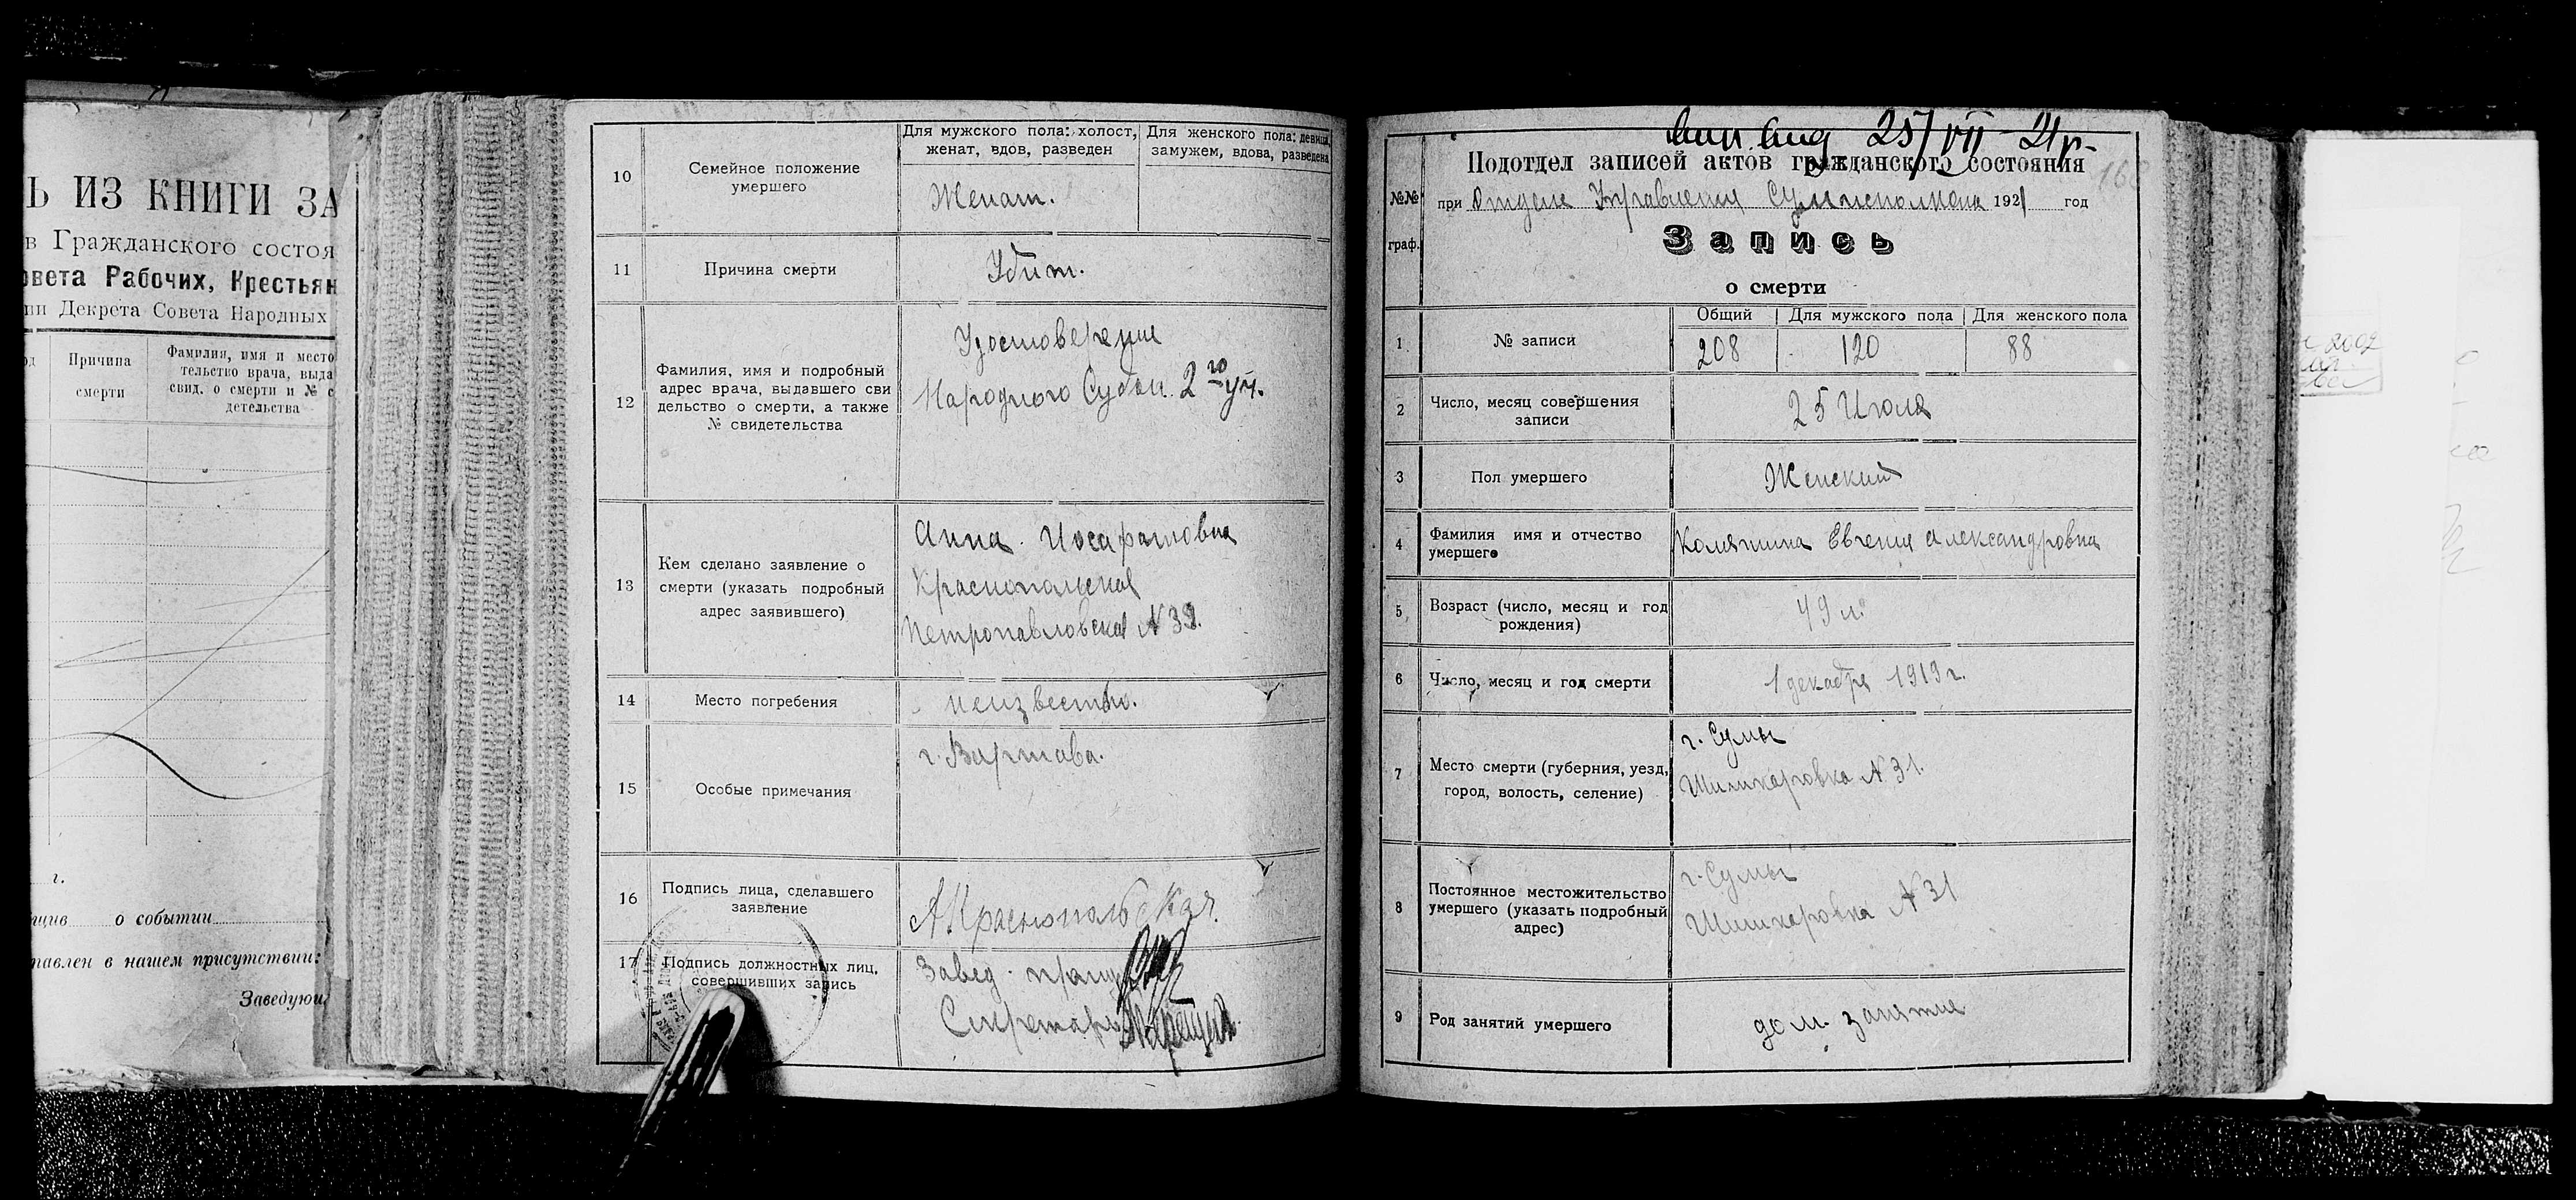 Ь ИЗ КНИГИ ЗА
в Гражданского состоя
овета Рабочих, Крестьян
ии Декрета Совета Народных
Причина
смерти
Фамилия, имя и место
тельство врача, выда
свид. о смерти и № с
детельства
г.
о событии
тавлен в нашем присутствии:
Заведующ
10
Семейное положение
умершего
Для мужского пола: холост,
женат, вдов, разведен
Для женского пола: девица,
замужем, вдова, разведена
Женат.
11
Причина смерти
Убит.
12
Фамилия, имя и подробный
адрес врача, выдавшего сви
дельство о смерти, а также
№ свидетельства
Удостоверение
Народного Судьи 2го уч.
13
Кем сделано заявление о
смерти (указать подробный
адрес заявившего)
Анна Иосафатовна
Краснопольская
Петропавловская N 39.
14
Место погребения
неизвестно.
15
Особые примечания
г. Варшава.
16
Подпись лица, сделавшего
заявление
А Краснопольская.
17
Подпись должностных лиц,
совершивших запись
Завед.
Секретарь
25/VII 21 р.
№№
граф.
Подотдел записей актов гражданского состояния
при Отделе Управления Сумисполкома 1921 год
Запись
о смерти
1
№ записи
Общий
Для мужского пола
Для женского пола
208
120
88
2
Число, месяц совершения
записи
25 Июля
3
Пол умершего
Женский
4
Фамилия имя и отчество
умершего
Коляжина Евгения Александровна
5
Возраст (число, месяц и год
рождения)
49 л.
6
Число, месяц и год смерти
1 декабря 1919 г.
7
Место смерти (губерния, уезд,
город, волость, селение)
г. Сумы
Шишкаровка N 31.
8
Постоянное местожительство
умершего (указать подробный
адрес)
г. Сумы
Шишкаровка N 31
9
Род занятий умершего
дом. занятие